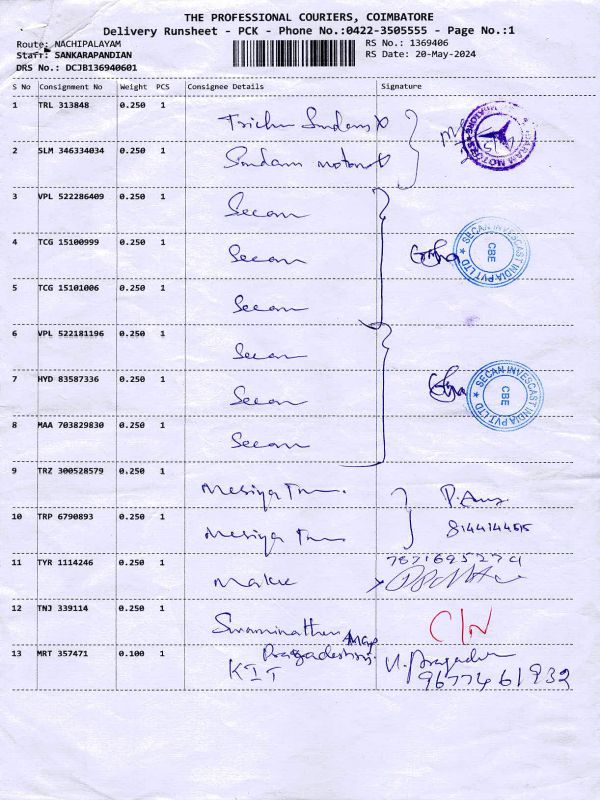 THE PROFESSIONAL COURIERS, COIMBATORE
Delivery Runsheet - PCK - Phone No.:0422-3505555 - Page No.:1
Route: NACHIPALAYAM RS No.: 1369406
Staff: SANKARAPANDIAN RS Date: 20-May-2024
DRS No.: DCJB136940601
S No Consignment No Weight PCS Consignee Details Signature
1 TRL 313848 0.250 1
2 SLM 346334034 0.250 1
3 VPL 522286409 0.250 1 Secan
4 TCG 15100999 0.250 1 Secan SECAN INVESCAST INDIA PVT LTD CBE
5 TCG 15101006 0.250 1 Secan
6 VPL 522181196 0.250 1 Secan
7 HYD 83587336 0.250 1 Secan SECAN INVESCAST INDIA PVT LTD CBE
8 MAA 703829830 0.250 1 Secan
9 TRZ 300528579 0.250 1
10 TRP 6790893 0.250 1
11 TYR 1114246 0.250 1
12 TNJ 339114 0.250 1 Swaminathan
13 MRT 357471 0.100 1 KIT 9677461932